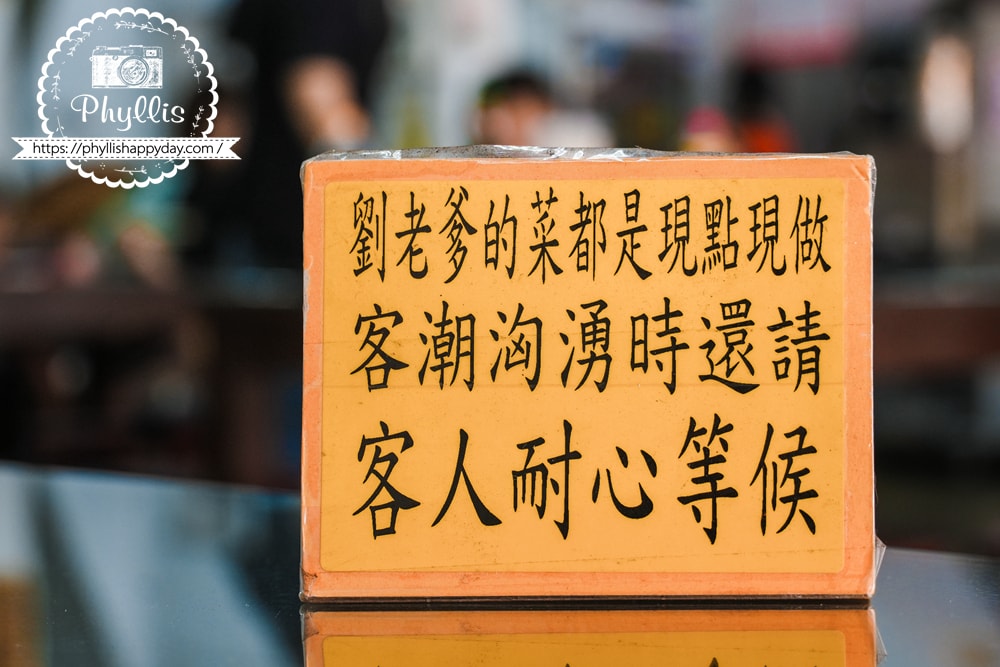 Phyllis
https://phyllishappyday.com/
劉老爹的菜都是現點現做
客潮洶湧時還請
客人耐心等候